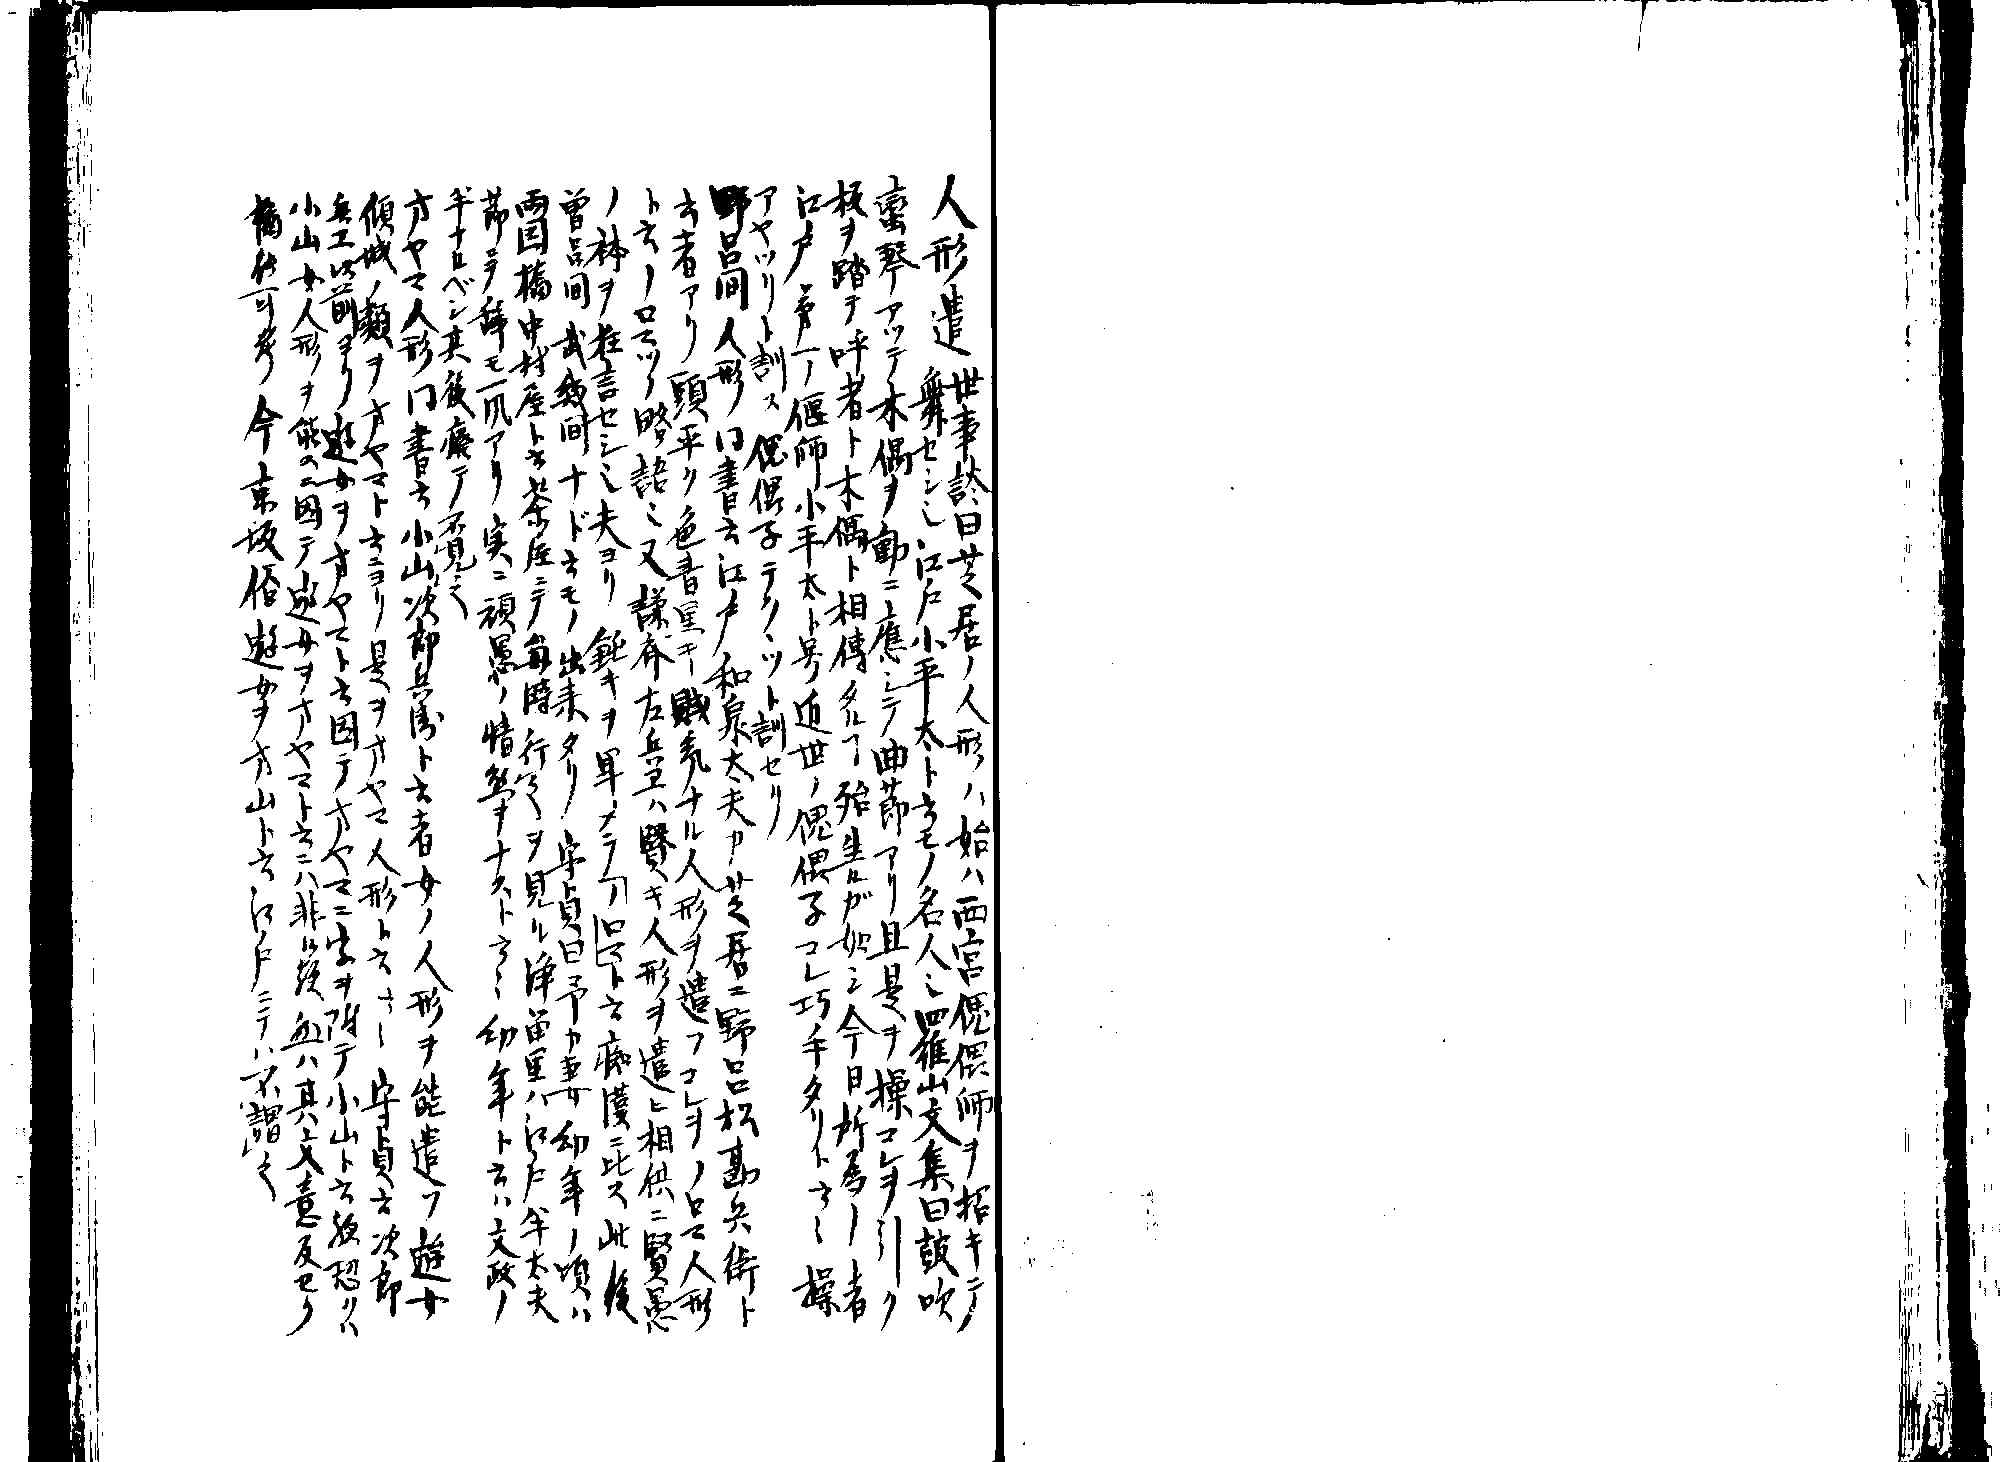 人形遣 世事談曰芝居ノ人形ハ始ハ西宮傀儡師ヲ招キテ
舞セシ也江戸小平太ト云モノ名人也羅山文集曰鼓吹
蛮琴アツテ木偶ヲ動ニ應シテ曲節アリ且是ヲ操コレヲ引ク
板ヲ踏テ呼者ト木偶ト相傳タルヿ殆生ルガ如シ今日所為ノ者
江戸第一ノ偃師小平太ト号近世ノ傀儡子コレ巧手タリト云々 操
アヤツリト訓ス 傀儡子テクヾツト訓セリ
野呂間人形 同書云江戸ノ和泉太夫カ芝居ニ野呂松勘兵衛ト
云者アリ頭平ク色青黒キ賎気ナル人形ヲ遣フコレヲノロマ人形
ト云ノロマツノ略語也又謙斎左兵衛ハ賢キ人形ヲ遣ヒ相供ニ賢愚
ノ体ヲ狂言セシ也夫ヨリ鈍キヲ卑メテノロマト云痴漢ニ比ス此後
曽呂間武蔵間ナド云モノ出来タリ 守貞曰予カ妻幼年ノ頃ハ
両国橋中村屋ト云茶屋ニテ毎時行之ヲ見ル浄留里ハ江戸半太夫
節ニテ舞モ一風アリ実ニ頑愚ノ情態ヲナスト云々幼年ト云ハ文政ノ
半ナルベシ其後廃テ不見之
オヤマ人形 同書云小山次郎兵衛ト云者女ノ人形ヲ能遣フ遊女
傾城ノ類ヲオヤマト云ヨリ是ヲオヤマ人形ト云 守貞云次郎
兵エ以前ヨリ遊女ヲオヤマト云因テオヤマニ字ヲ附テ小山ト云歟恐クハ
小山女人形ヲ能スニ因テ遊女ヲオヤマト云ニハ非ル歟然ハ其文意反セリ
猶後可考 今京坂俗遊女ヲオ山ト云江戸ニテハ不謂之